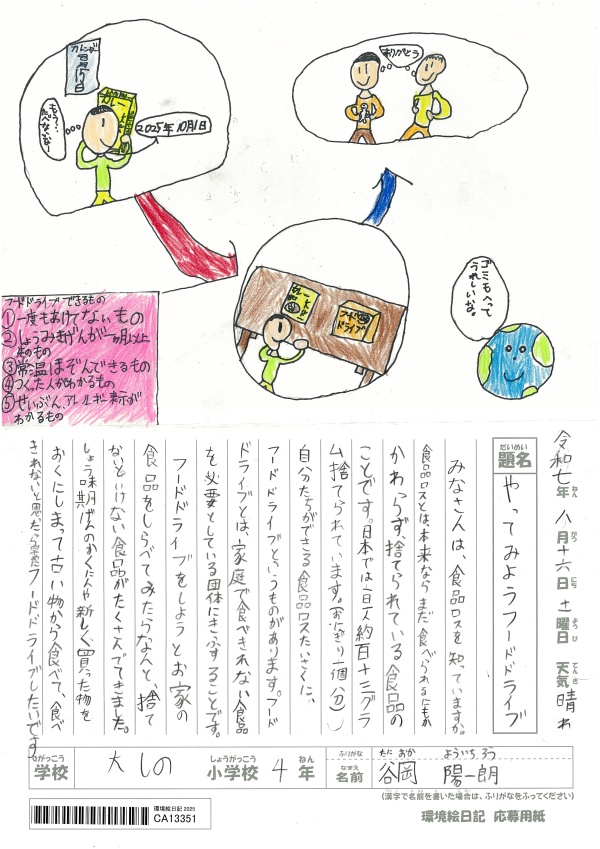 カレンダー
8月15日
もう…食べないな…
カレー
2025年10月1日
ありがとう
フードドライブできるもの
①一度もあけてないもの
②しょうみきげんが一ヵ月以上先のもの
③常温ほぞんできるもの
④つくった人がわかるもの
⑤せいぶん、アレルギー表示がわかるもの
フードドライブ
ゴミもへってうれしいな。
令和七年 八月十六日 土曜日 天気 晴れ
ねん がつ にち ようび てんき
だいめい
題名 やってみようフードドライブ
みなさんは、食品ロスを知っていますか。
食品ロスとは、本来ならまだ食べられるにもか
かわらず、捨てられている食品の
ことです。日本では一日一人約百十三グラ
ム捨てられています。(おにぎり一個分)
自分たちができる食品ロスたいさくに、
フードドライブというものがあります。フード
ドライブとは、家庭で食べきれない食品
を必要としている団体にきふすることです。
フードドライブをしようとお家の
食品をしらべてみたらなんと、捨て
ないといけない食品がたくさんでてきました。
しょう味期げんのかくにんや新しく買った物を
おくにしまって古い物から食べて、食べ
きれないと思ったら、またフードドライブしたいです。
がっこう しょうがっこう ねん ふりがな たにおか よういちろう
学校 大しの 小学校 4年 なまえ 名前 谷岡 陽一朗
(漢字で名前を書いた場合は、ふりがなをふってください)
環境絵日記 2025
CA13351
環境絵日記 応募用紙